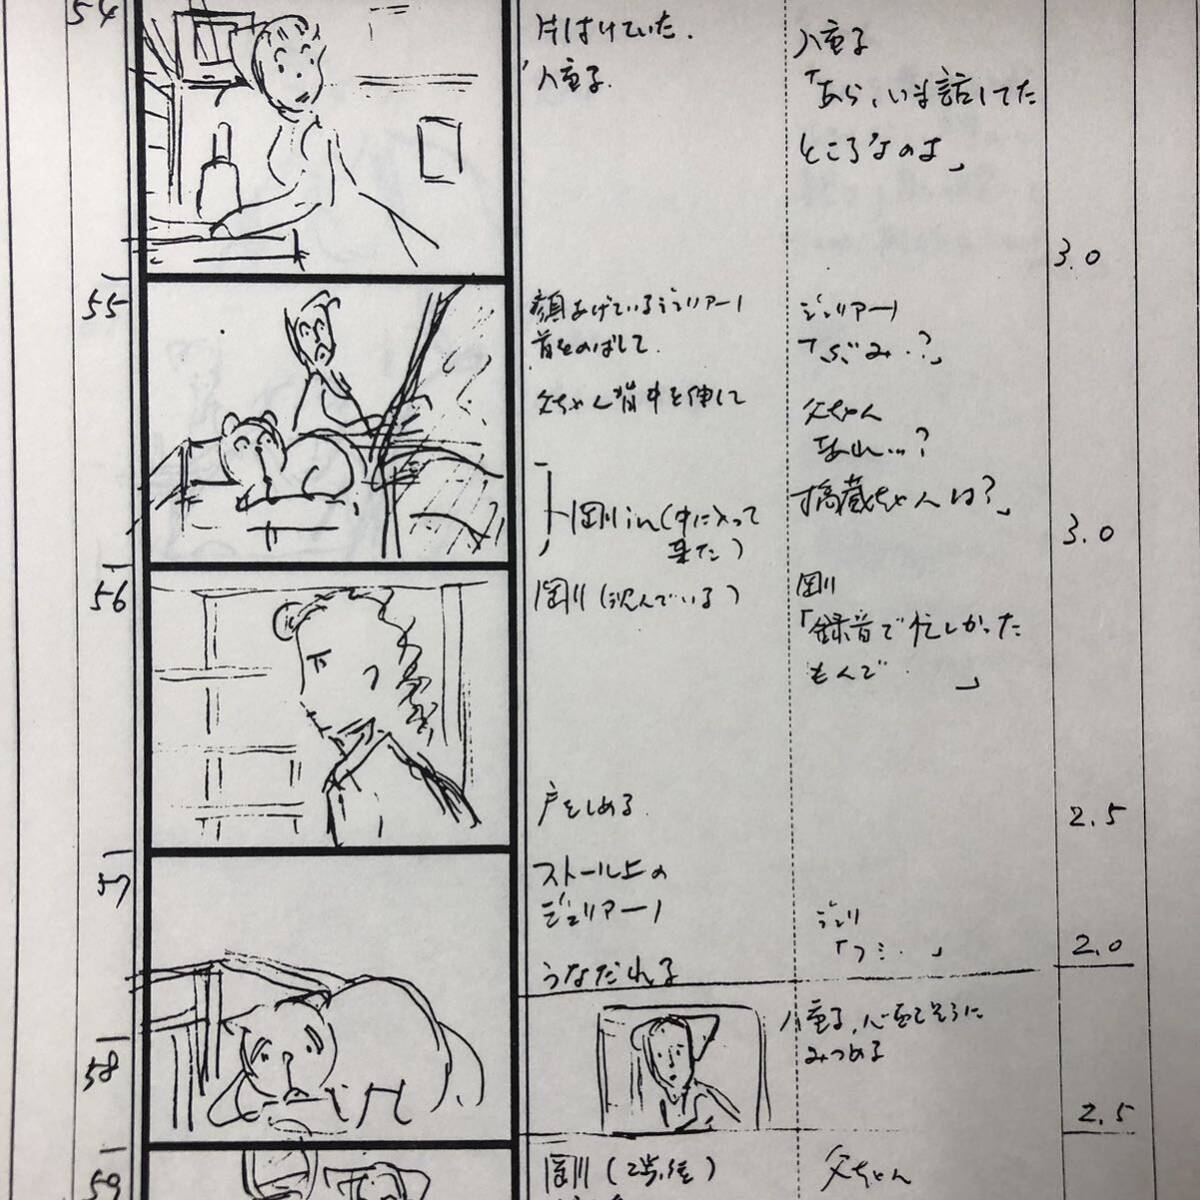 54
片はけていた.
八重子
八重子
「あら、いま話してた
ところなのよ」
3.0
55
顔あげているジュリアーノ
首をのばして.
父ちゃん背中を伸して
剛in(中に入って
来た)
ジュリアーノ
「ふみ・?」
父ちゃん
あれ…?
ちゃんは?」
3.0
56
剛(沈んでいる)
戸をしめる.
剛
「録音で忙しかった
もんで・ 」
2.5
57
ストール上の
ジュリアーノ
うなだれる
ジュリ
「フミ・・」
2.0
58
八重子、心配そうに
みつめる
2.5
59
剛
父ちゃん